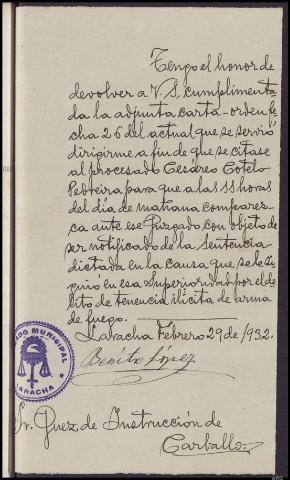 Tengo el honor de
devolver a V.S. cumplimenta-
da la adjunta carta-orden fe-
cha 26 del actual que se servió
dirigirme a fin de que se citase
al procesado Cesáreo Cotelo
Pedreira para que a las 11 horas
del dia de mañana comparez-
ca ante ese Juzgado con objeto de
ser notificado de la sentencia
dictada en la causa que se le si-
guió en esa Superioridad por el de-
lito de tenencia ilicita de arma
de fuego.
Laracha Febrero 29 de 1932.
Benito López
MUNICIPAL
LARACHA
Sr. Juez de Instrucción de
Carballo